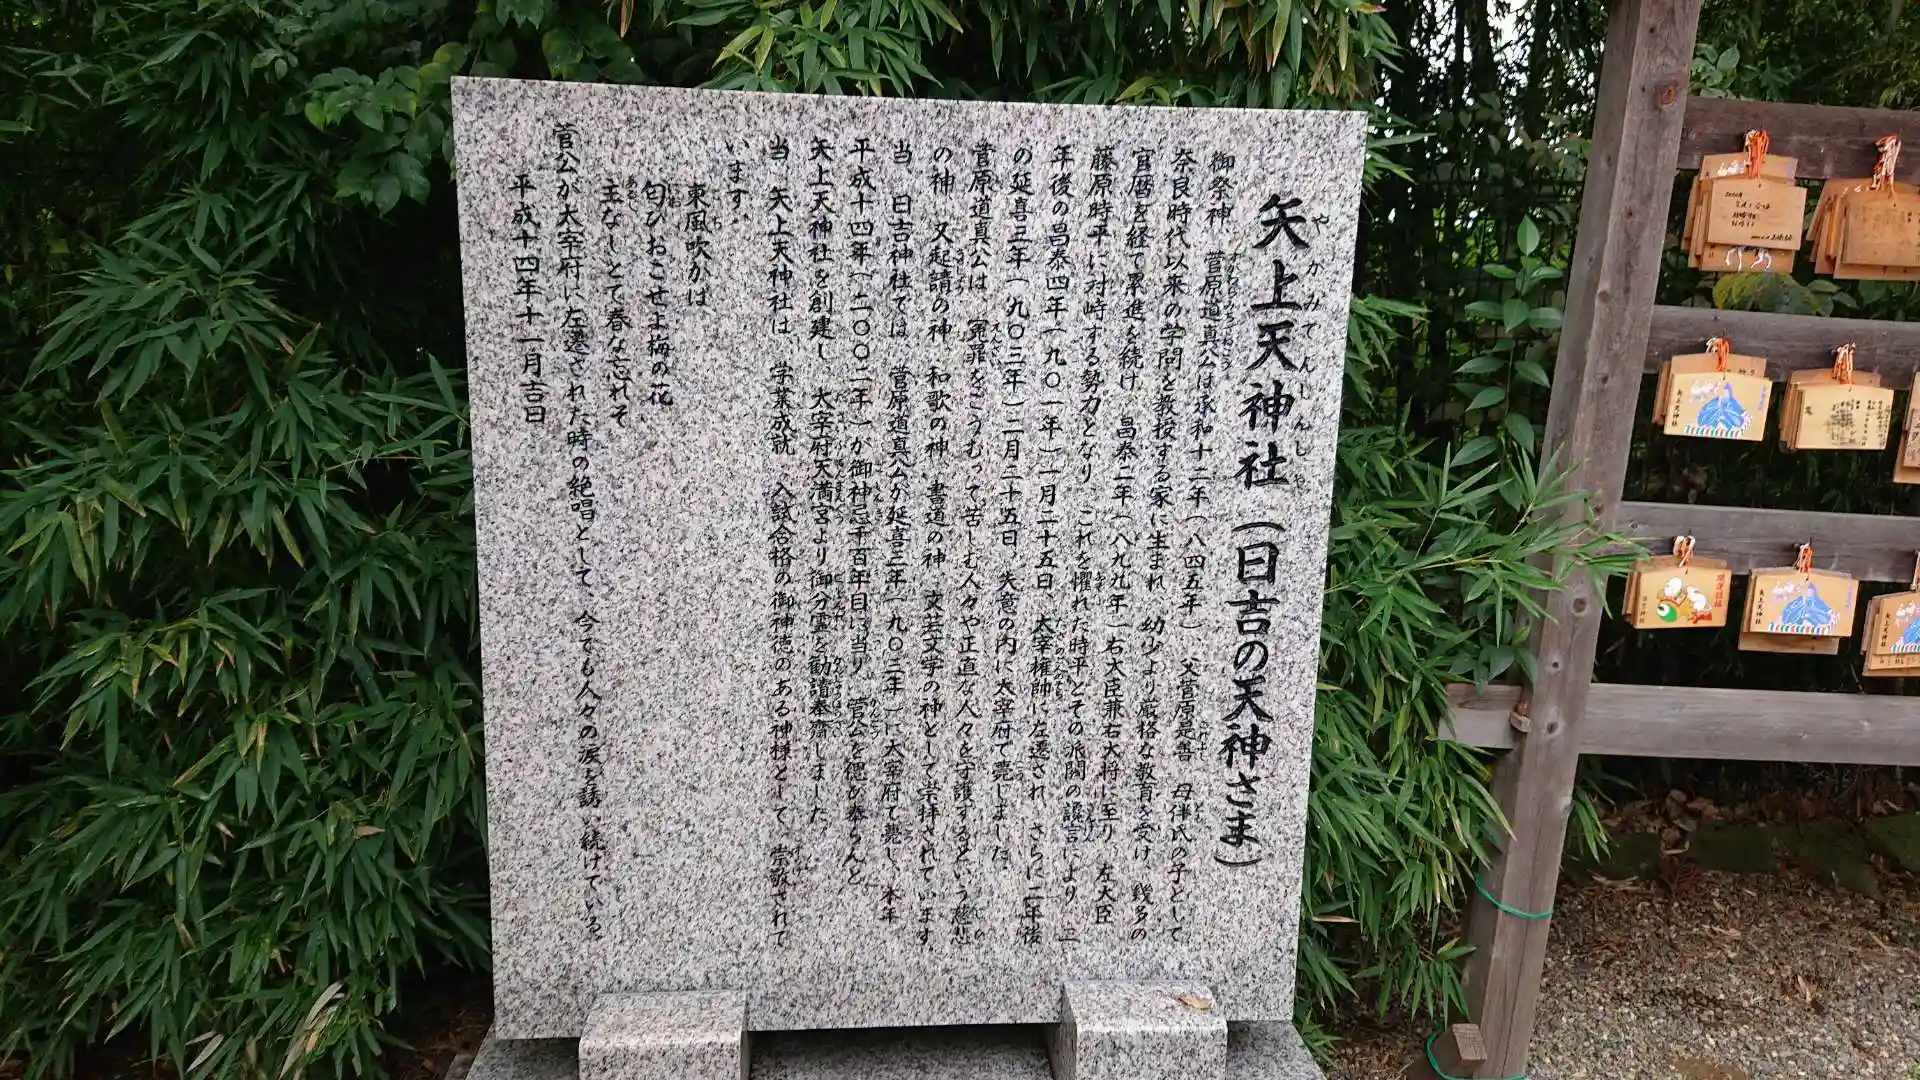 矢上天神社（日吉の天神さま）
やがみてんじんしゃ
御祭神　菅原道真公は承和十二年（八四五年）、父菅原是善　母伴氏の子として
奈良時代以来の学問を教授する家に生まれ　幼少より厳格な教育を受け　幾多の
官暦を経て累進を続け　昌泰二年（八九九年）右大臣兼右大将に至り　左大臣
藤原時平に対峙する勢力となり　これを懼れた時平とその派閥の讒言により　二
年後の昌泰四年（九〇一年）一月二十五日、太宰権帥に左遷され　さらに二年後
の延喜三年（九〇三年）二月二十五日　失意の内に太宰府で薨じました。
菅原道真公は、冤罪をこうむって苦しむ人々や正直な人々を守護するという慈悲
の神　又起請の神、和歌の神、書道の神、文芸文学の神として崇拝されています
当　日吉神社では　菅原道真公が延喜三年（九〇三年）に太宰府で薨じ、本年
平成十四年（二〇〇二年）が御神忌千百年目に当り　菅公を偲び奉らんと
矢上天神社を創建し　太宰府天満宮より御分霊を勧請奉齋しました。
当　矢上天神社は、学業成就　入試合格の御神徳のある神様として　崇敬されて
います。
東風吹かは
匂ひおこせよ梅の花
主なしとて春な忘れそ
菅公が太宰府に左遷された時の絶唱として、今でも人々の涙を誘い続けている。
平成十四年十一月吉日
矢上天神社